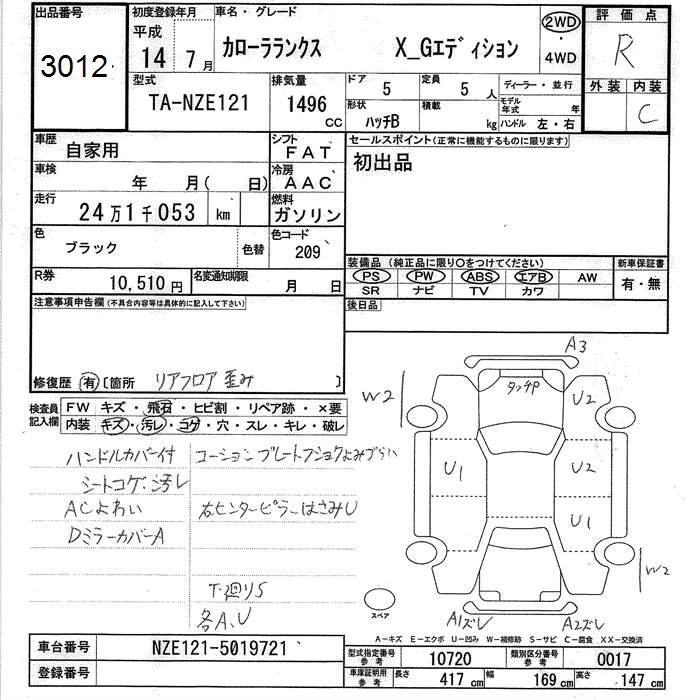 出品番号
3012
初度登録年月
平成
14 7月
車名・グレード
カローラランクス X_Gエディション
2WD
・
4WD
評価点
R
外装 内装
C
型式
TA-NZE121
排気量
1496
CC
ドア 5
定員 5人
形状 ハッチB
積載 kg
ディーラー・並行
モデル年式 年
ハンドル 左・右
車歴
自家用
シフト
FAT
セールスポイント(正常に機能するものに限ります)
初出品
車検
年 月( 日)
冷房
AAC
走行
24万1千053 km
燃料
ガソリン
色
ブラック
色替
色コード
209
装備品(純正品に限り○をつけてください)
PS PW ABS エアB AW
SR ナビ TV カワ
新車保証書
有・無
R券
10,510円
名変通知期限
月 日
後日品
注意事項申告欄(不具合内容等は具体的に記入して下さい)
修復歴 有〔箇所 リアフロア歪み 〕
検査員記入欄
FW キズ・飛石・ヒビ割・リペア跡・×要
内装 キズ・汚レ・コゲ・穴・スレ・キレ・破レ
ハンドルカバー付 コーションプレートフショクよみづらい
シートコゲ.汚レ
ACよわい 右センターピラーはさみU
DミラーカバーA
T.廻りS
各A.U
A3
タッチP
W2
U2
U1
U2
U1
W2
スペア
A1ズレ
A2ズレ
A-キズ E-エクボ U-凹み W-補修跡 S-サビ C-腐食 XX-交換済
車台番号 NZE121-5019721
登録番号
型式指定番号 参考 10720
類別区分番号 参考 0017
車庫証明用 参考
長さ 417cm
幅 169cm
高さ 147cm